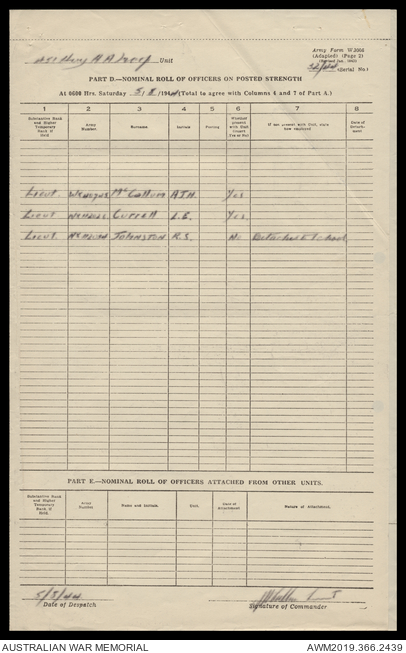 Army Form W3008
(Adapted) (Page 2)
Unit
22/44 (Serial No.)
PART D.—NOMINAL ROLL OF OFFICERS ON POSTED STRENGTH
At 0600 Hrs. Saturday 5/8/1944 (Total to agree with Columns 4 and 7 of Part A.)
1 2 3 4 5 6 7 8
Substantive Rank and Higher Temporary Rank if Held
Army Number
Surname
Initials
Posting
Whether present with Unit (Yes or No)
If not present with Unit, state how employed
Date of Detachment
Lieut. McCallum A.J.H. Yes
Lieut Currell L.E. Yes
Lieut Johnston R.S. No School
PART E.—NOMINAL ROLL OF OFFICERS ATTACHED FROM OTHER UNITS.
Substantive Rank and Higher Temporary Rank if Held
Army Number
Name and Initials.
Unit.
Date of Attachment
Nature of Attachment.
5/8/44
Date of Despatch
Signature of Commander
AUSTRALIAN WAR MEMORIAL
AWM2019.366.2439